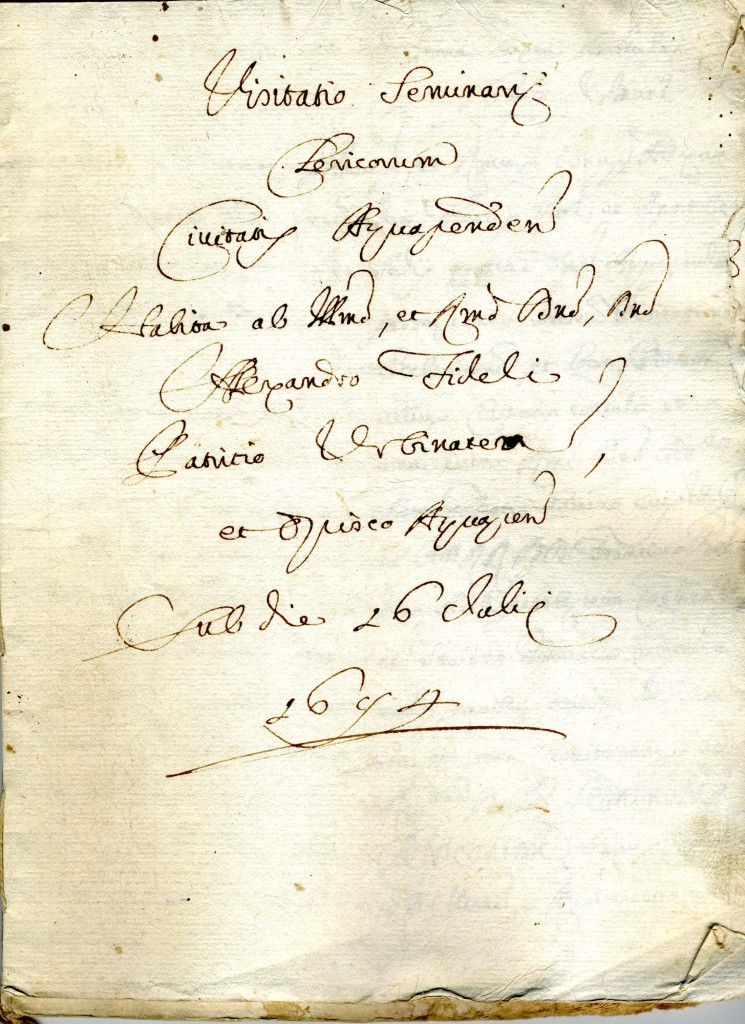 Visitatio Seminarij
Clericorum
Civitatis Aquependen
Habita ab Illmo, et Rmo Dno, Dno
Alexandro Fideli
Patritio Urbinaten,
et Episco Aquepen
Sub die 16 Julij
1654